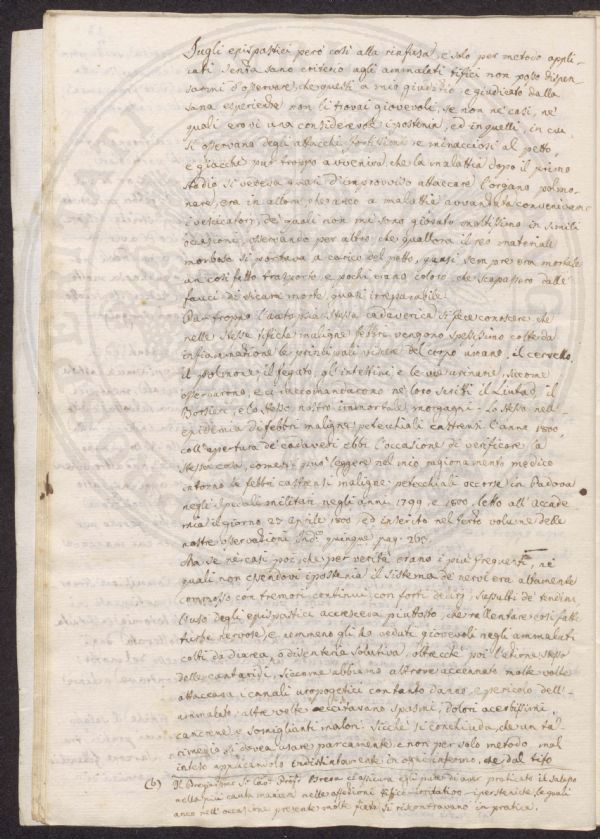 Sugli epispastici però così alla rinfusa, e solo per metodo appli-
cati senza sano criterio agli ammalati tifici non posso dispen-
sarmi d'osservare, che questi a mio giudizio e giudicato dalla
sana esperienza non li trovai giovevoli, se non ne' casi, ne'
quali eravi una considerevole ipostenia, ed in quelli, in cui
si osservava degli attacchi fortissimi e minacciosi al petto
e giacchè pur troppo avveniva, che la malattia dopo il primo
stadio si vedeva quasi d'improvviso attaccare l'organo polmo-
nare, era in allora, che anco a malattia avvanzata convenivano
i vescicatorj, de' quali non mi sono giovato moltissimo in simili
occasioni, osservando per altro che quallora il reo materiale
morboso si portava a carico del petto, quasi sempre era mortale
un così fatto trasporto, e pochi erano coloro, che scapassero dalle
fauci di sicura morte, quasi irreparabile.
Pur troppo l'autopsia stessa cadaverica ci fece conoscere che
nelle stesse tifiche maligne febbri vengono spessissimo colte da
infiammazione le principali viscere del corpo umano, il cervello,
il polmone, il fegato, gl'intestini e le vie urinarie, siccome
osservarono, e ci raccomandarono ne' loro scritti il Liutad, il
Borsieri, e lo stesso nostro immortale Morgagni. Lo stesso nell'
epidemia di febbri maligne petecchiali castrensi l'anno 1800,
coll'apertura de' cadaveri ebbi l'occasione di verificare la
stessa cosa, come si può leggere nel mio ragionamento medico
intorno le febbri castrensi maligne petecchiali occorse in Padova
negli Spedali militari negli anni 1799 e 1800, letto all'Accade-
mia il giorno 23 Aprile 1800 ed inserito nel Sesto volume delle
nostre osservazioni pag. 265.
Ma se ne' casi poi, che per verità erano i più frequenti, ne'
quali non essendovi ipostenia il sistema de' nervi era altamente
commosso con tremori continui, con forti delirj, sussulti de' tendini
l'uso degli epispastici accresceva piuttosto, che rallentare così fatte
turbe nervose, e nemmeno gli ho veduti giovevoli negli ammalati
colti da diarea, o disenteria solutiva, oltrecchè poi l'azione stessa
delle cantaridi, siccome abbiamo altrove accennato molte volte
attaccava i canali uropoetici con tanto danno, e pericolo dell'-
ammalato, altre volte eccitavano spasmi, dolori acerbissimi,
cancrene e somiglianti malori. Sicchè si conchiuda, che un tal
rimedio si doveva usare parcamente e non per solo metodo mal
inteso appiccarvelo indistintamente in ogni infermo, che dal tifo
(b) Il Sr. Cavr. Profr. Brera ci assicura egli pure di aver praticato il salasso
nella più cauta maniera nelle affezioni tifico-irritative iperstenite, le quali
anco nell'occasione presente molte fiate si riscontravano in pratica.